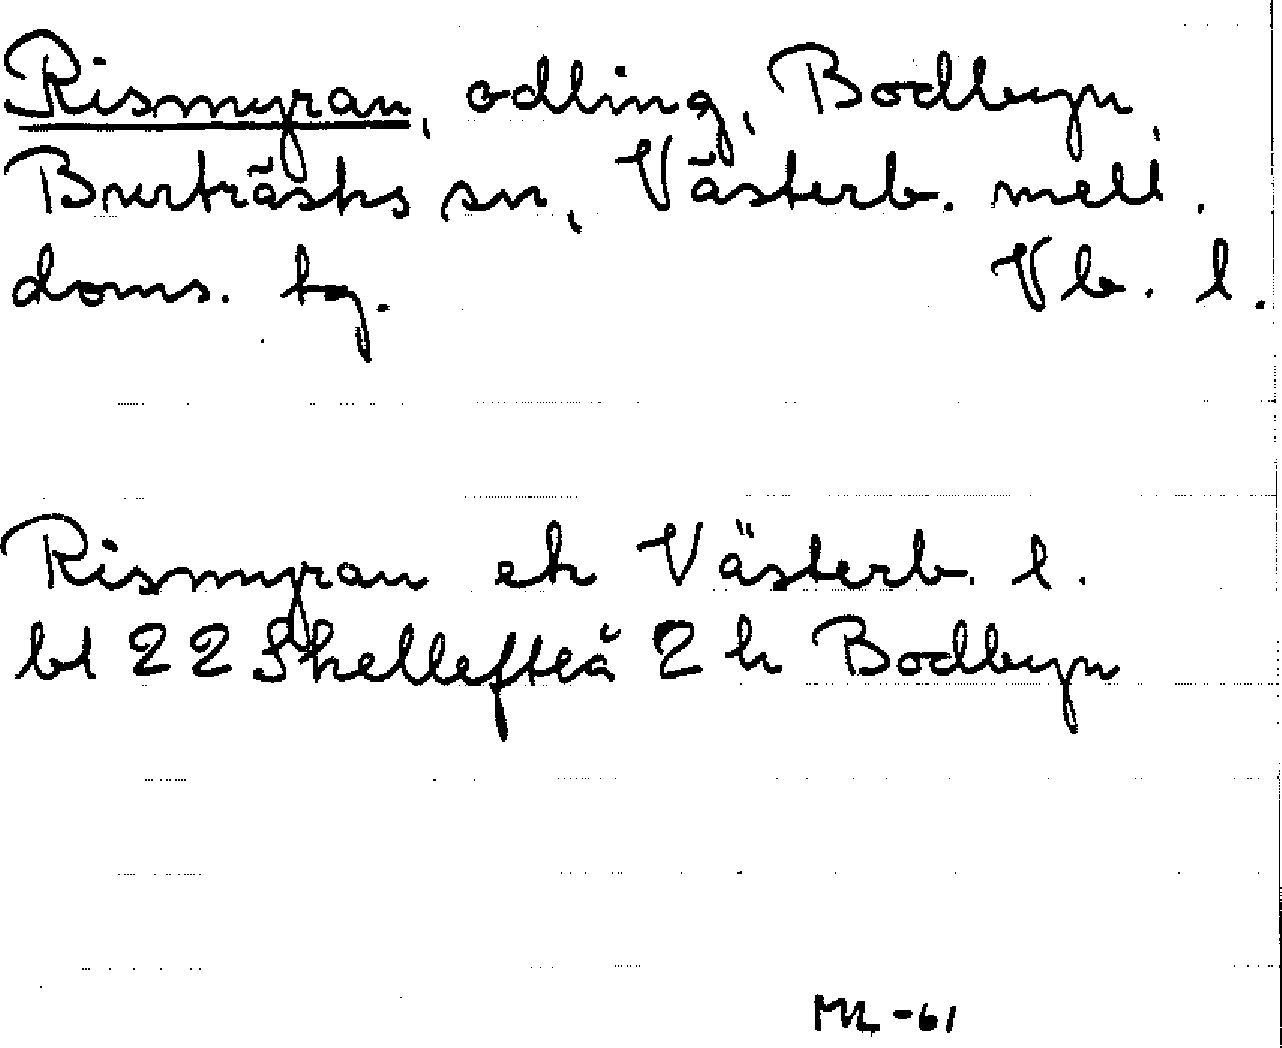 Rismyran, odling, Bodbyn,
Burträsks sn, Västerb. mell.
doms. tg. Vb. l.
Rismyran ek Västerb. l.
bl 22 Skellefteå 2 h Bodbyn
-61